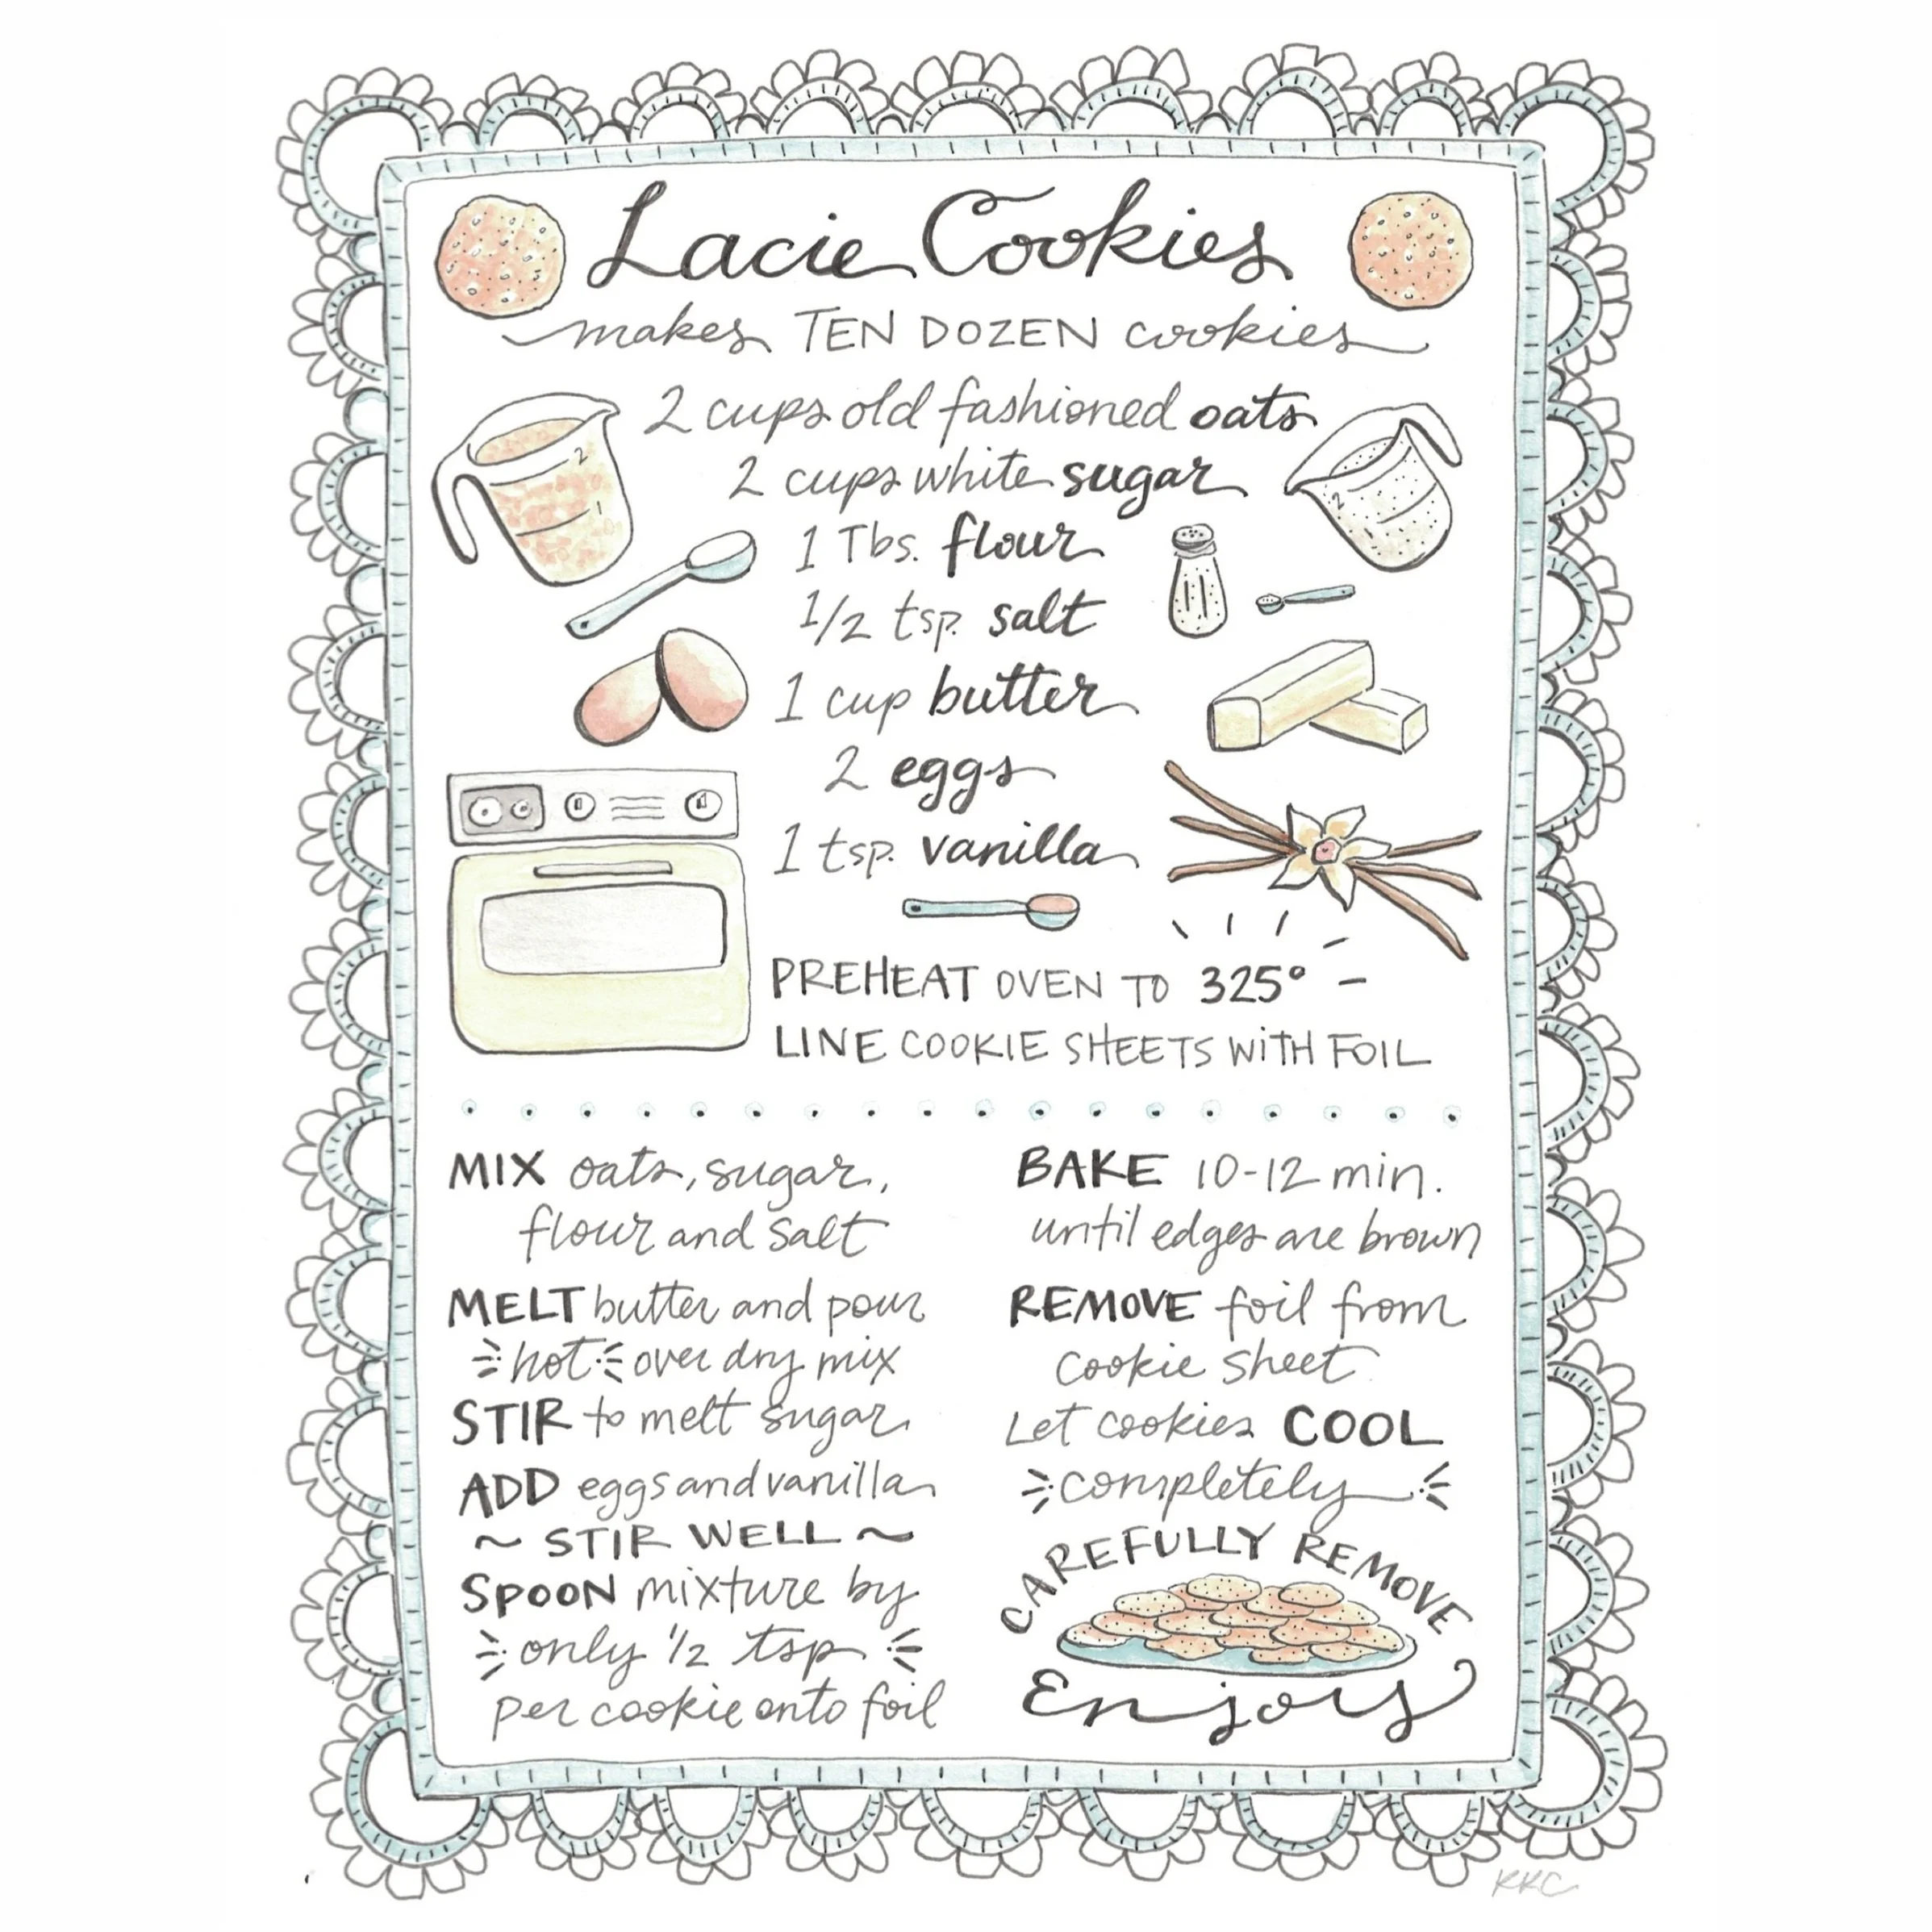 Lacie Cookies
makes TEN DOZEN cookies
2 cups old fashioned oats
2 cups white sugar
1 Tbs. flour
1/2 tsp. salt
1 cup butter
2 eggs
1 tsp. vanilla
PREHEAT OVEN TO 325°
LINE COOKIE SHEETS WITH FOIL
MIX oats, sugar,
flour and salt
MELT butter and pour
hot over dry mix
STIR to melt sugar
ADD eggs and vanilla
~ STIR WELL ~
SPOON mixture by
only 1/2 tsp
per cookie onto foil
BAKE 10-12 min.
until edges are brown
REMOVE foil from
cookie sheet
Let cookies COOL
completely
CAREFULLY REMOVE
Enjoy
KKC
2
1
2